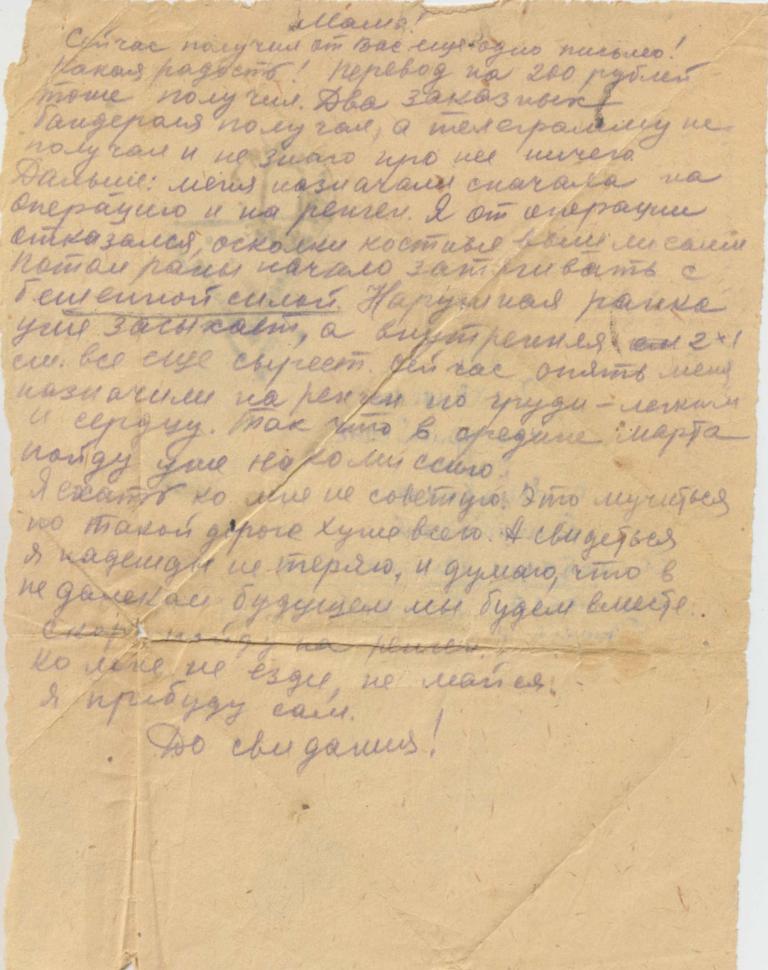 Мама!
Сейчас получил от Вас еще одно письмо!
Какая радость! Перевод на 200 рублей
тоже получил. Два заказных
бандероля получал, а телеграмму не
получал и не знаю про нее ничего
Дальше: меня назначали сначала на
операцию и на ренген. Я от операции
отказался, осколки костные вышли сами
потом раны начало затягивать с
бешенной силой. Наружная ранка
уже засыхает, а внутренняя 2×1
см. все еще сыреет. Сейчас опять меня
назначили на ренген по груди – легким
и сердцу. Так что в средине марта
пойду уже на комиссию.
Я ехать ко мне не советую. Это мучиться
по такой дороге хуже всего. А свидеться
я надежды не теряю, и думаю, что в
не далеком будущем мы будем вместе..
Скоро пойду на ренген.
Ко мне не езди, не майся.
Я прибуду сам.
До свидания!